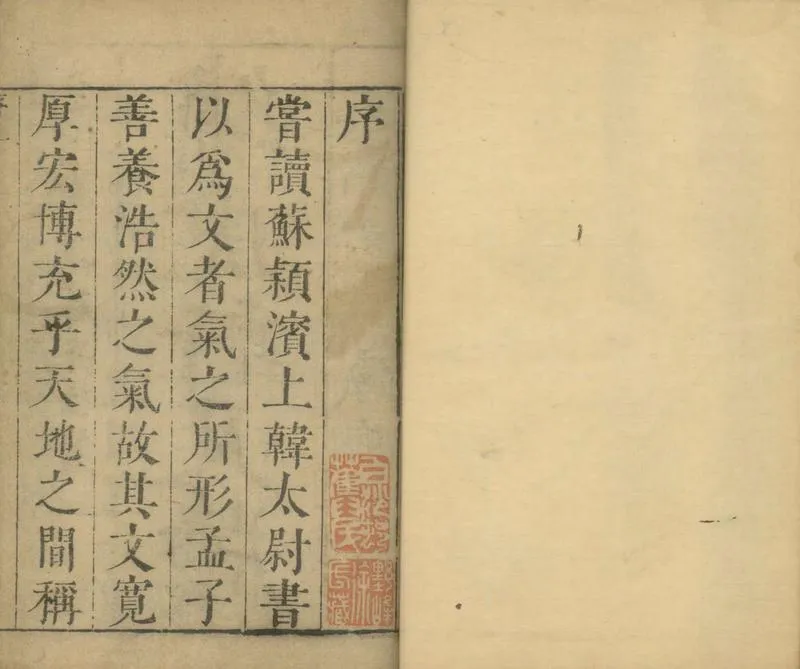 序
嘗讀蘇潁濱上韓太尉書
以爲文者氣之所形孟子
善養浩然之氣故其文寬
厚宏博充乎天地之間稱